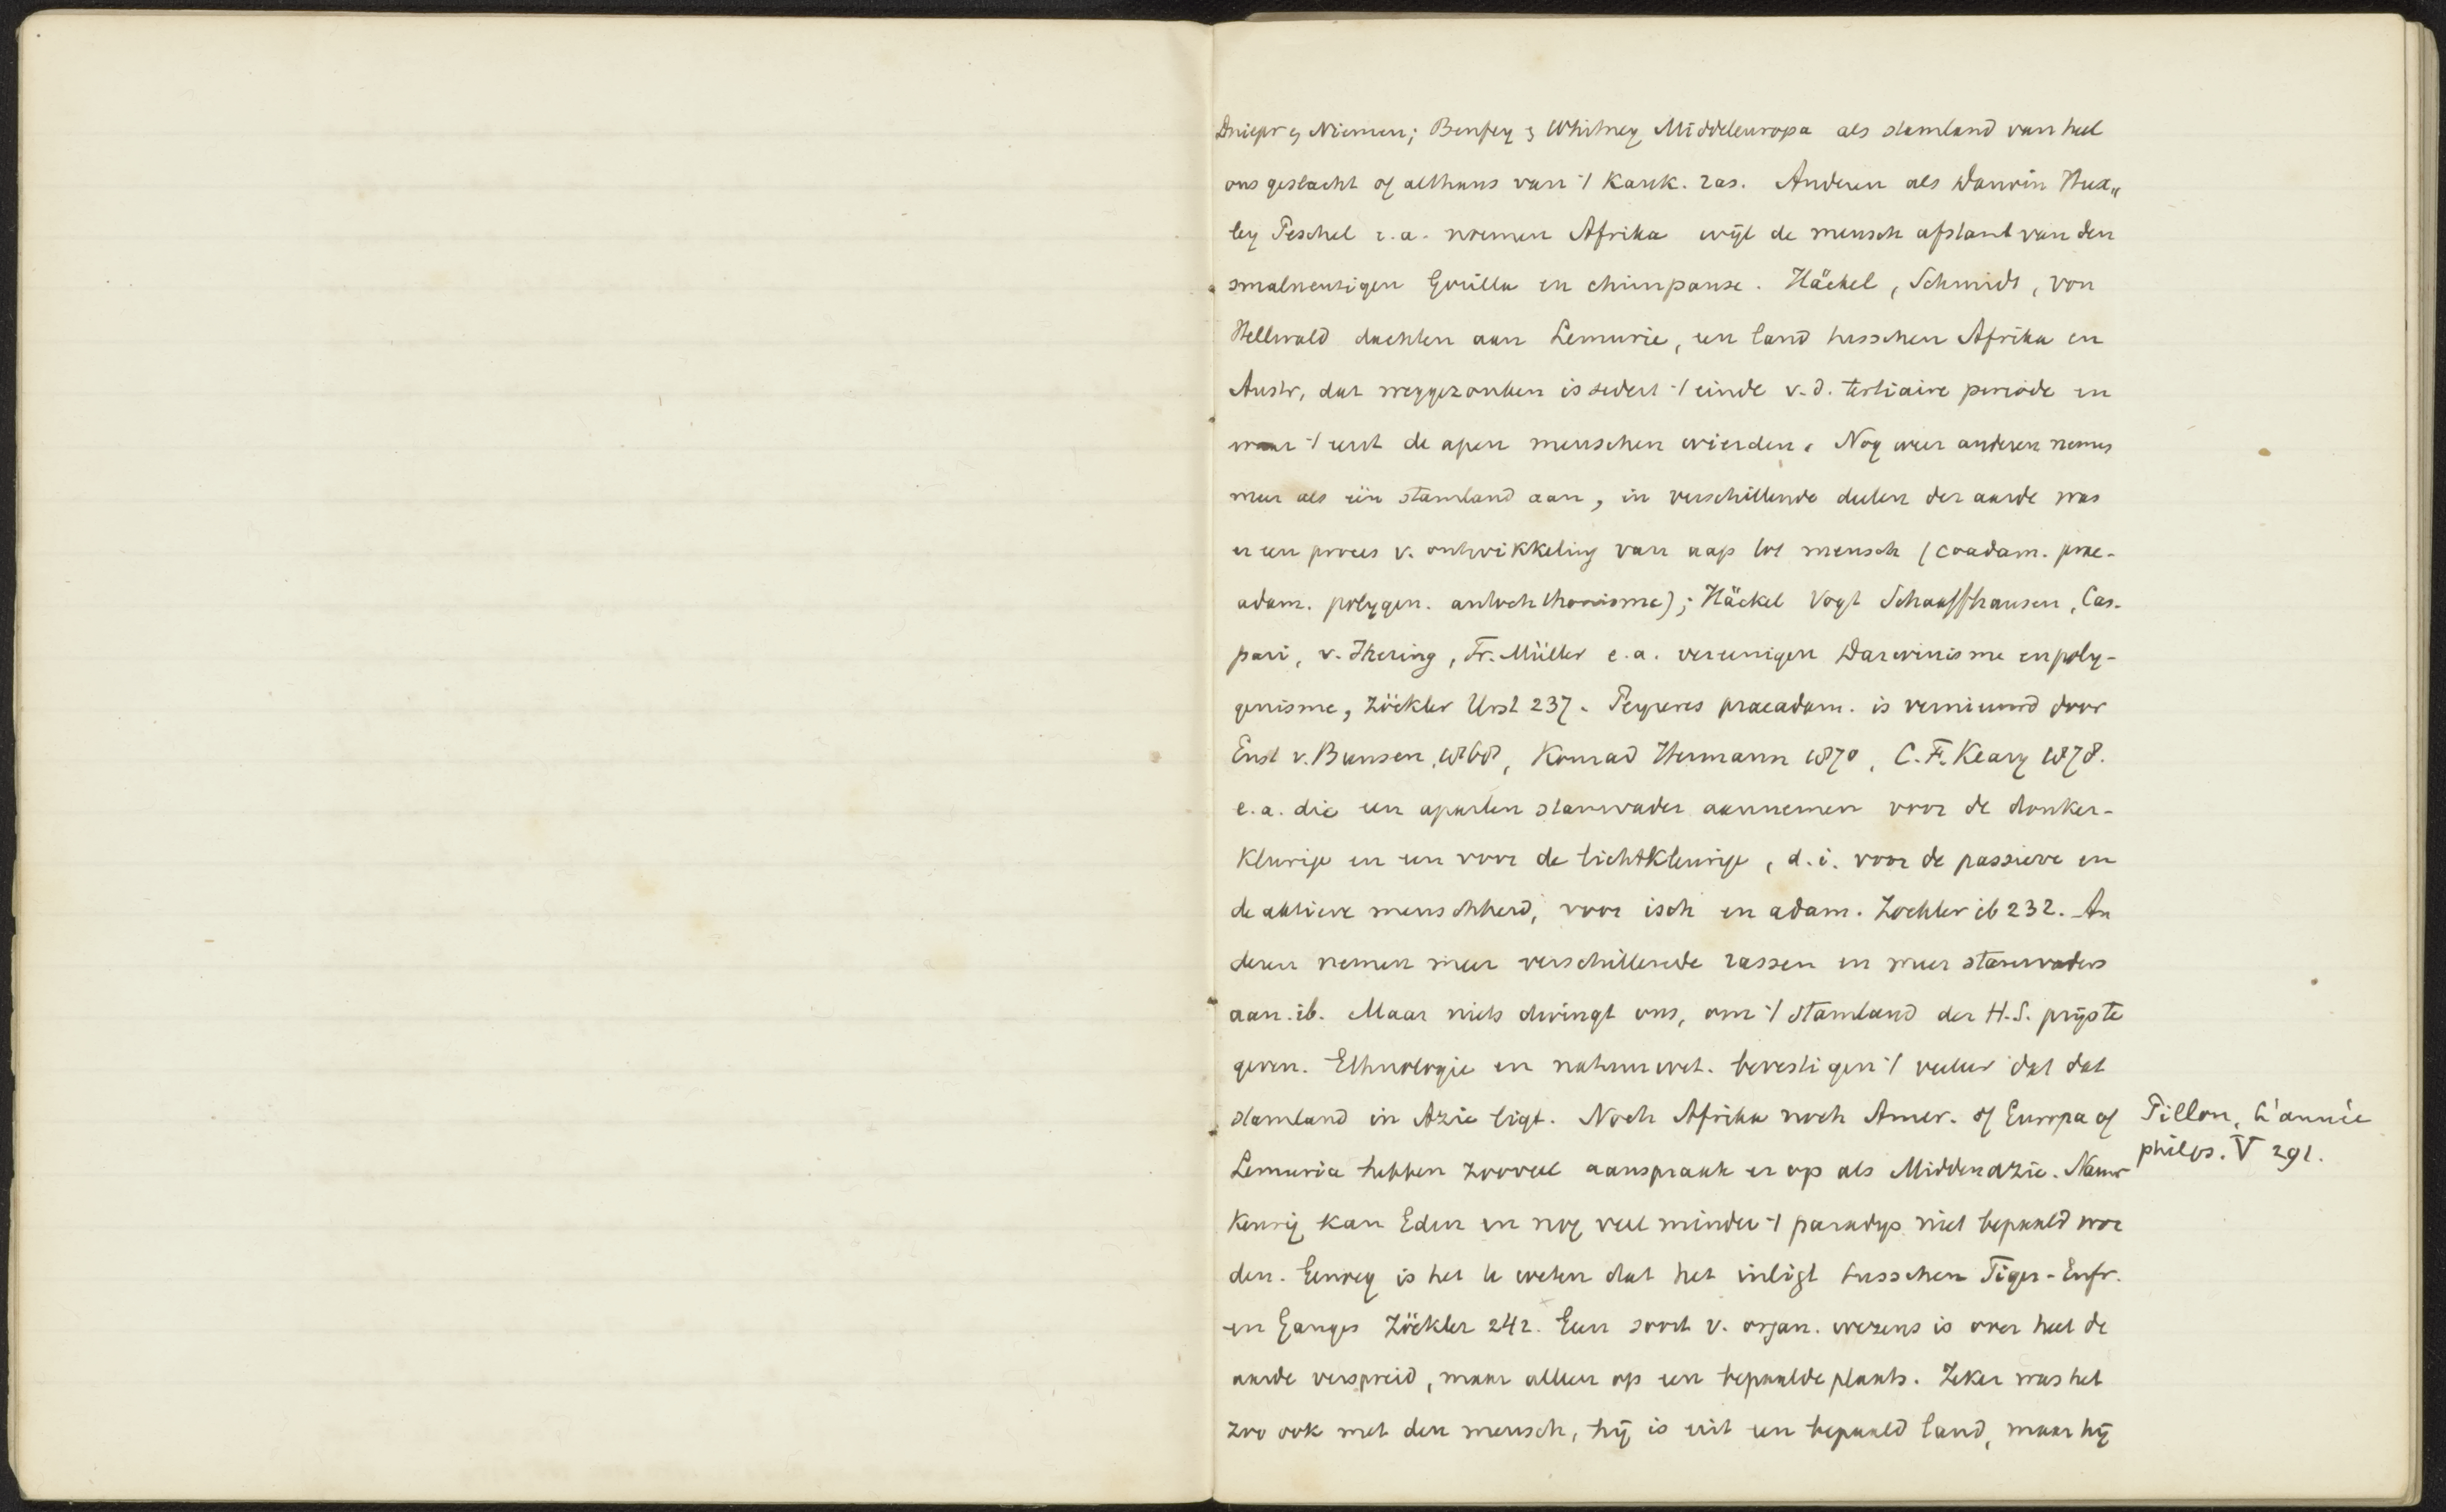 Dniepr en Niemen; Benfey en Whitney Middeleuropa als stamland van heel
ons geslacht of althans van 't Kauk. ras. Anderen als Darwin Hux„
ley Peschel e.a. noemen Afrika wijl de mensch afstamt van den
smalneuzigen Gorilla en chimpanse. Häckel, Schmidt, von
Hellwald dachten aan Lemurie, een land tusschen Afrika en
Austr, dat weggezonken is sedert 't einde v.d. tertiaire periode en
waar 't eerst de apen menschen wierden. Nog weer anderen nemen
meer als één stamland aan, in verschillende deelen der aarde was
er een proces v. ontwikkeling van aap tot mensch (coadam. prae-
adam. polygen. autochthonisme); Häckel Vogt Schaaffhausen, Cas-
pari, v. Ihering, Fr. Müller e.a. vereenigen Darwinisme en poly-
genisme, Zöckler Urst 237. Peyreres praeadam. is vernieuwd door
Enst v. Bunsen, 1868, Konrad Hermann 1870, C.F. Keary 1878.
e.a. die een aparten stamvader aannemen voor de donker-
kleurige en een voor de lichtkleurige, d.i. voor de passieve en
de aktieve menschheid, voor isch en adam. Zöckler ib 232. An
deren nemen meer verschillende rassen en meer stamvaders
aan. ib. Maar niets dwingt ons, om 't stamland der H.S. prijs te
geven. Ethnologie en natuurwet. bevestigen 't veeleer dat dat
stamland in Azie ligt. Noch Afrika noch Amer. of Europa of
Lemuria hebben zooveel aanspraak er op als Middenazie. Nauw
keurig kan Eden en nog veel minder 't paradijs niet bepaald wor
den. Genoeg is het te weten dat het inligt tusschen Tiger-Eufr.
en Ganges Zöckler 242. Geen soort v. organ. wezens is over heel de
aarde verspreid, maar alleen op een bepaalde plaats. Zeker was het
zoo ook met den mensch, hij is uit een bepaald land, maar hij
Pillon, L'année
philos. V 291.